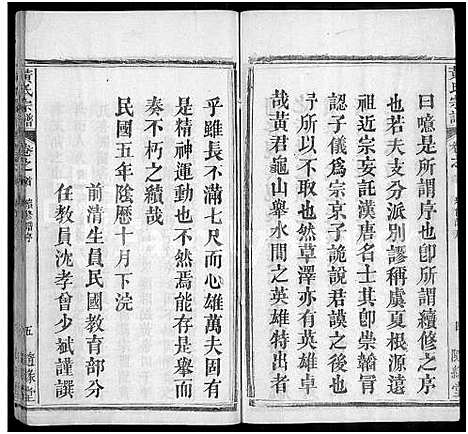 黄氏宗譜
卷之
曰噫是所謂序也卽所謂續修之序
也若夫支分派別謬稱虞夏根源遠
祖近宗妄託漢唐名士其卽崇韜冒
認子儀爲宗京子詭說君謨之後也
所以不取也然草澤亦有英雄卓
哉黄君龜山舉水間之英雄特出者
乎雖長不滿七尺而心雄萬夫固有
是精神運動也不然焉能是舉而
奏不朽之績哉
民國五年陰曆十月下浣
前清生員民國教育部分
任教員沈孝會少斌謹撰
黄氏宗譜
卷之首
續修譜序
五
隨緣堂